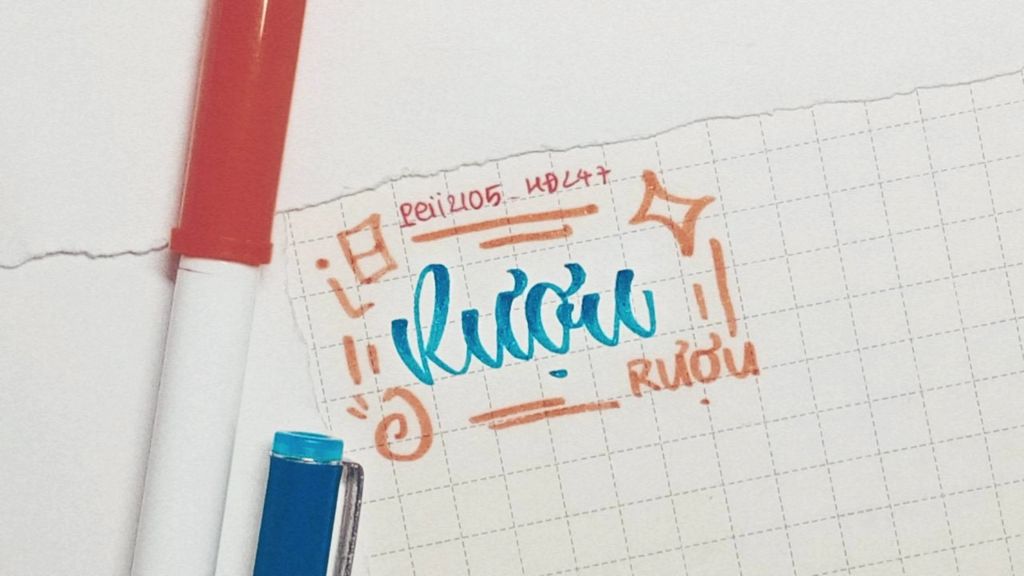 Peii2105_HĐL47
Rượu
RƯỢU